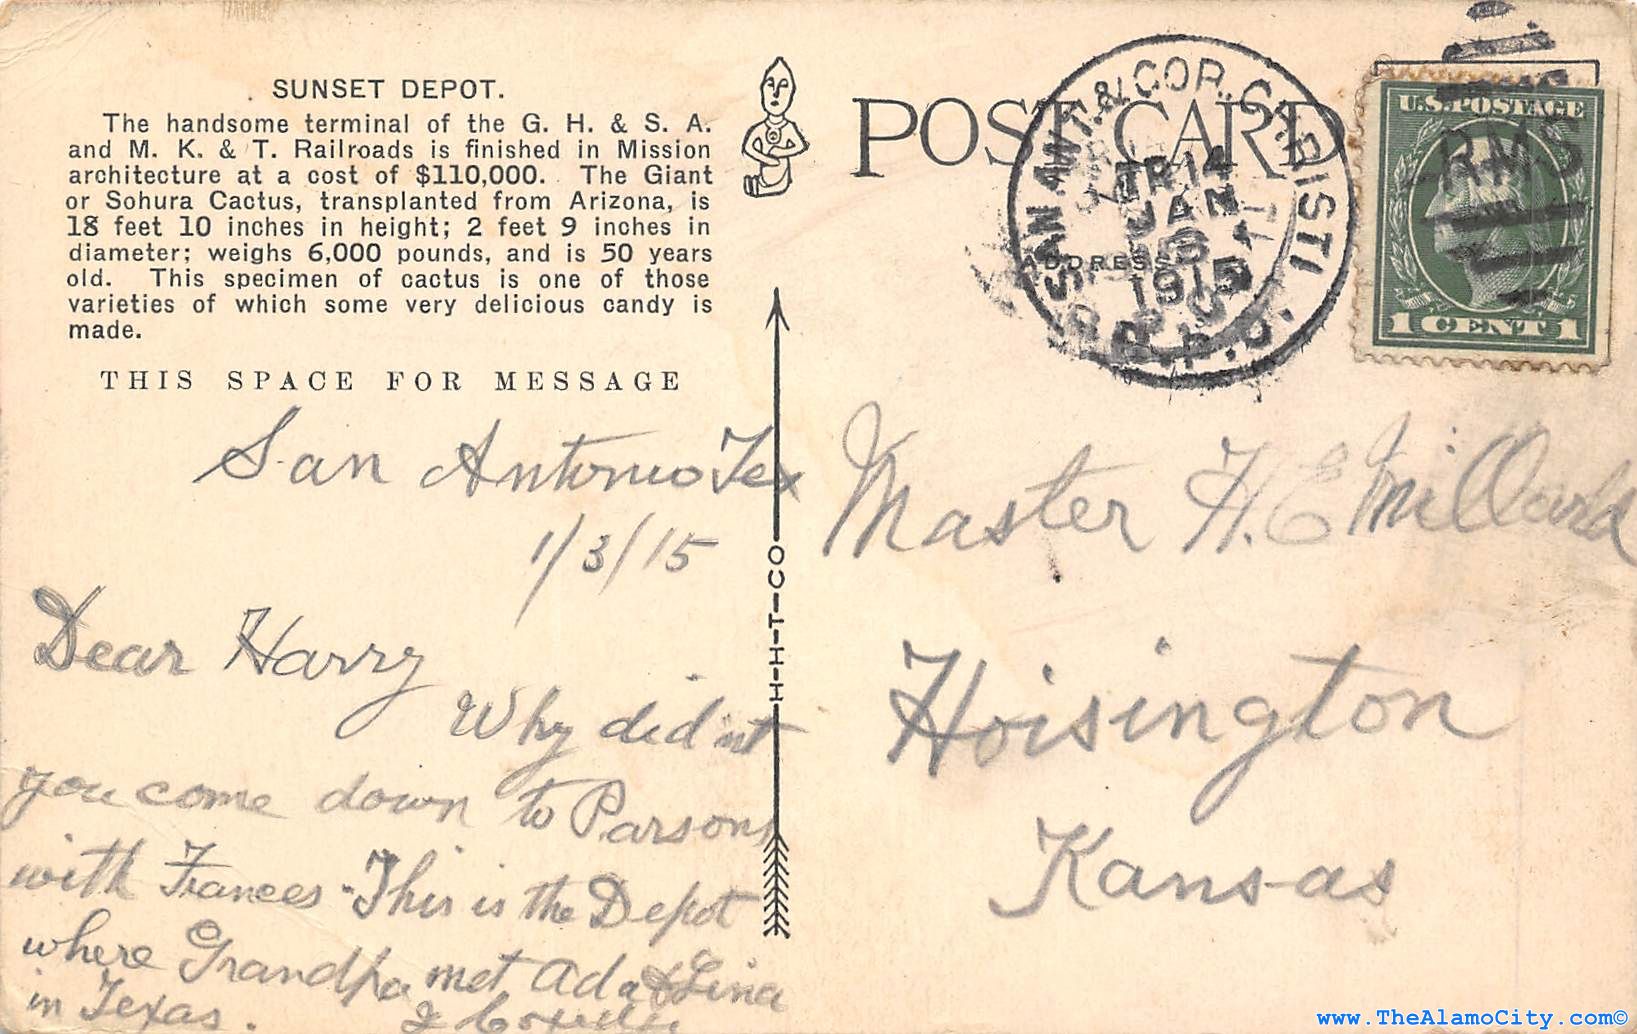 SUNSET DEPOT.
The handsome terminal of the G. H. & S. A.
and M. K. & T. Railroads is finished in Mission
architecture at a cost of $110,000. The Giant
or Sohura Cactus, transplanted from Arizona, is
18 feet 10 inches in height; 2 feet 9 inches in
diameter; weighs 6,000 pounds, and is 50 years
old. This specimen of cactus is one of those
varieties of which some very delicious candy is
made.
THIS SPACE FOR MESSAGE
San Antonio Tex
1/3/15
Dear Harry
Why did'nt
you come down to Parsons
with Frances - This is the Depot
where Grandpa met Ada & Lina
in Texas.
H-H-T-CO
POST CARD
ADDRESS
SAN ANT. & COR. CHRISTI
TR 14
JAN
3
1915
R.P.O.
RMS
U.S. POSTAGE
1 CENT 1
Master H. E. Millard
Hoisington
Kansas
www.TheAlamoCity.com©